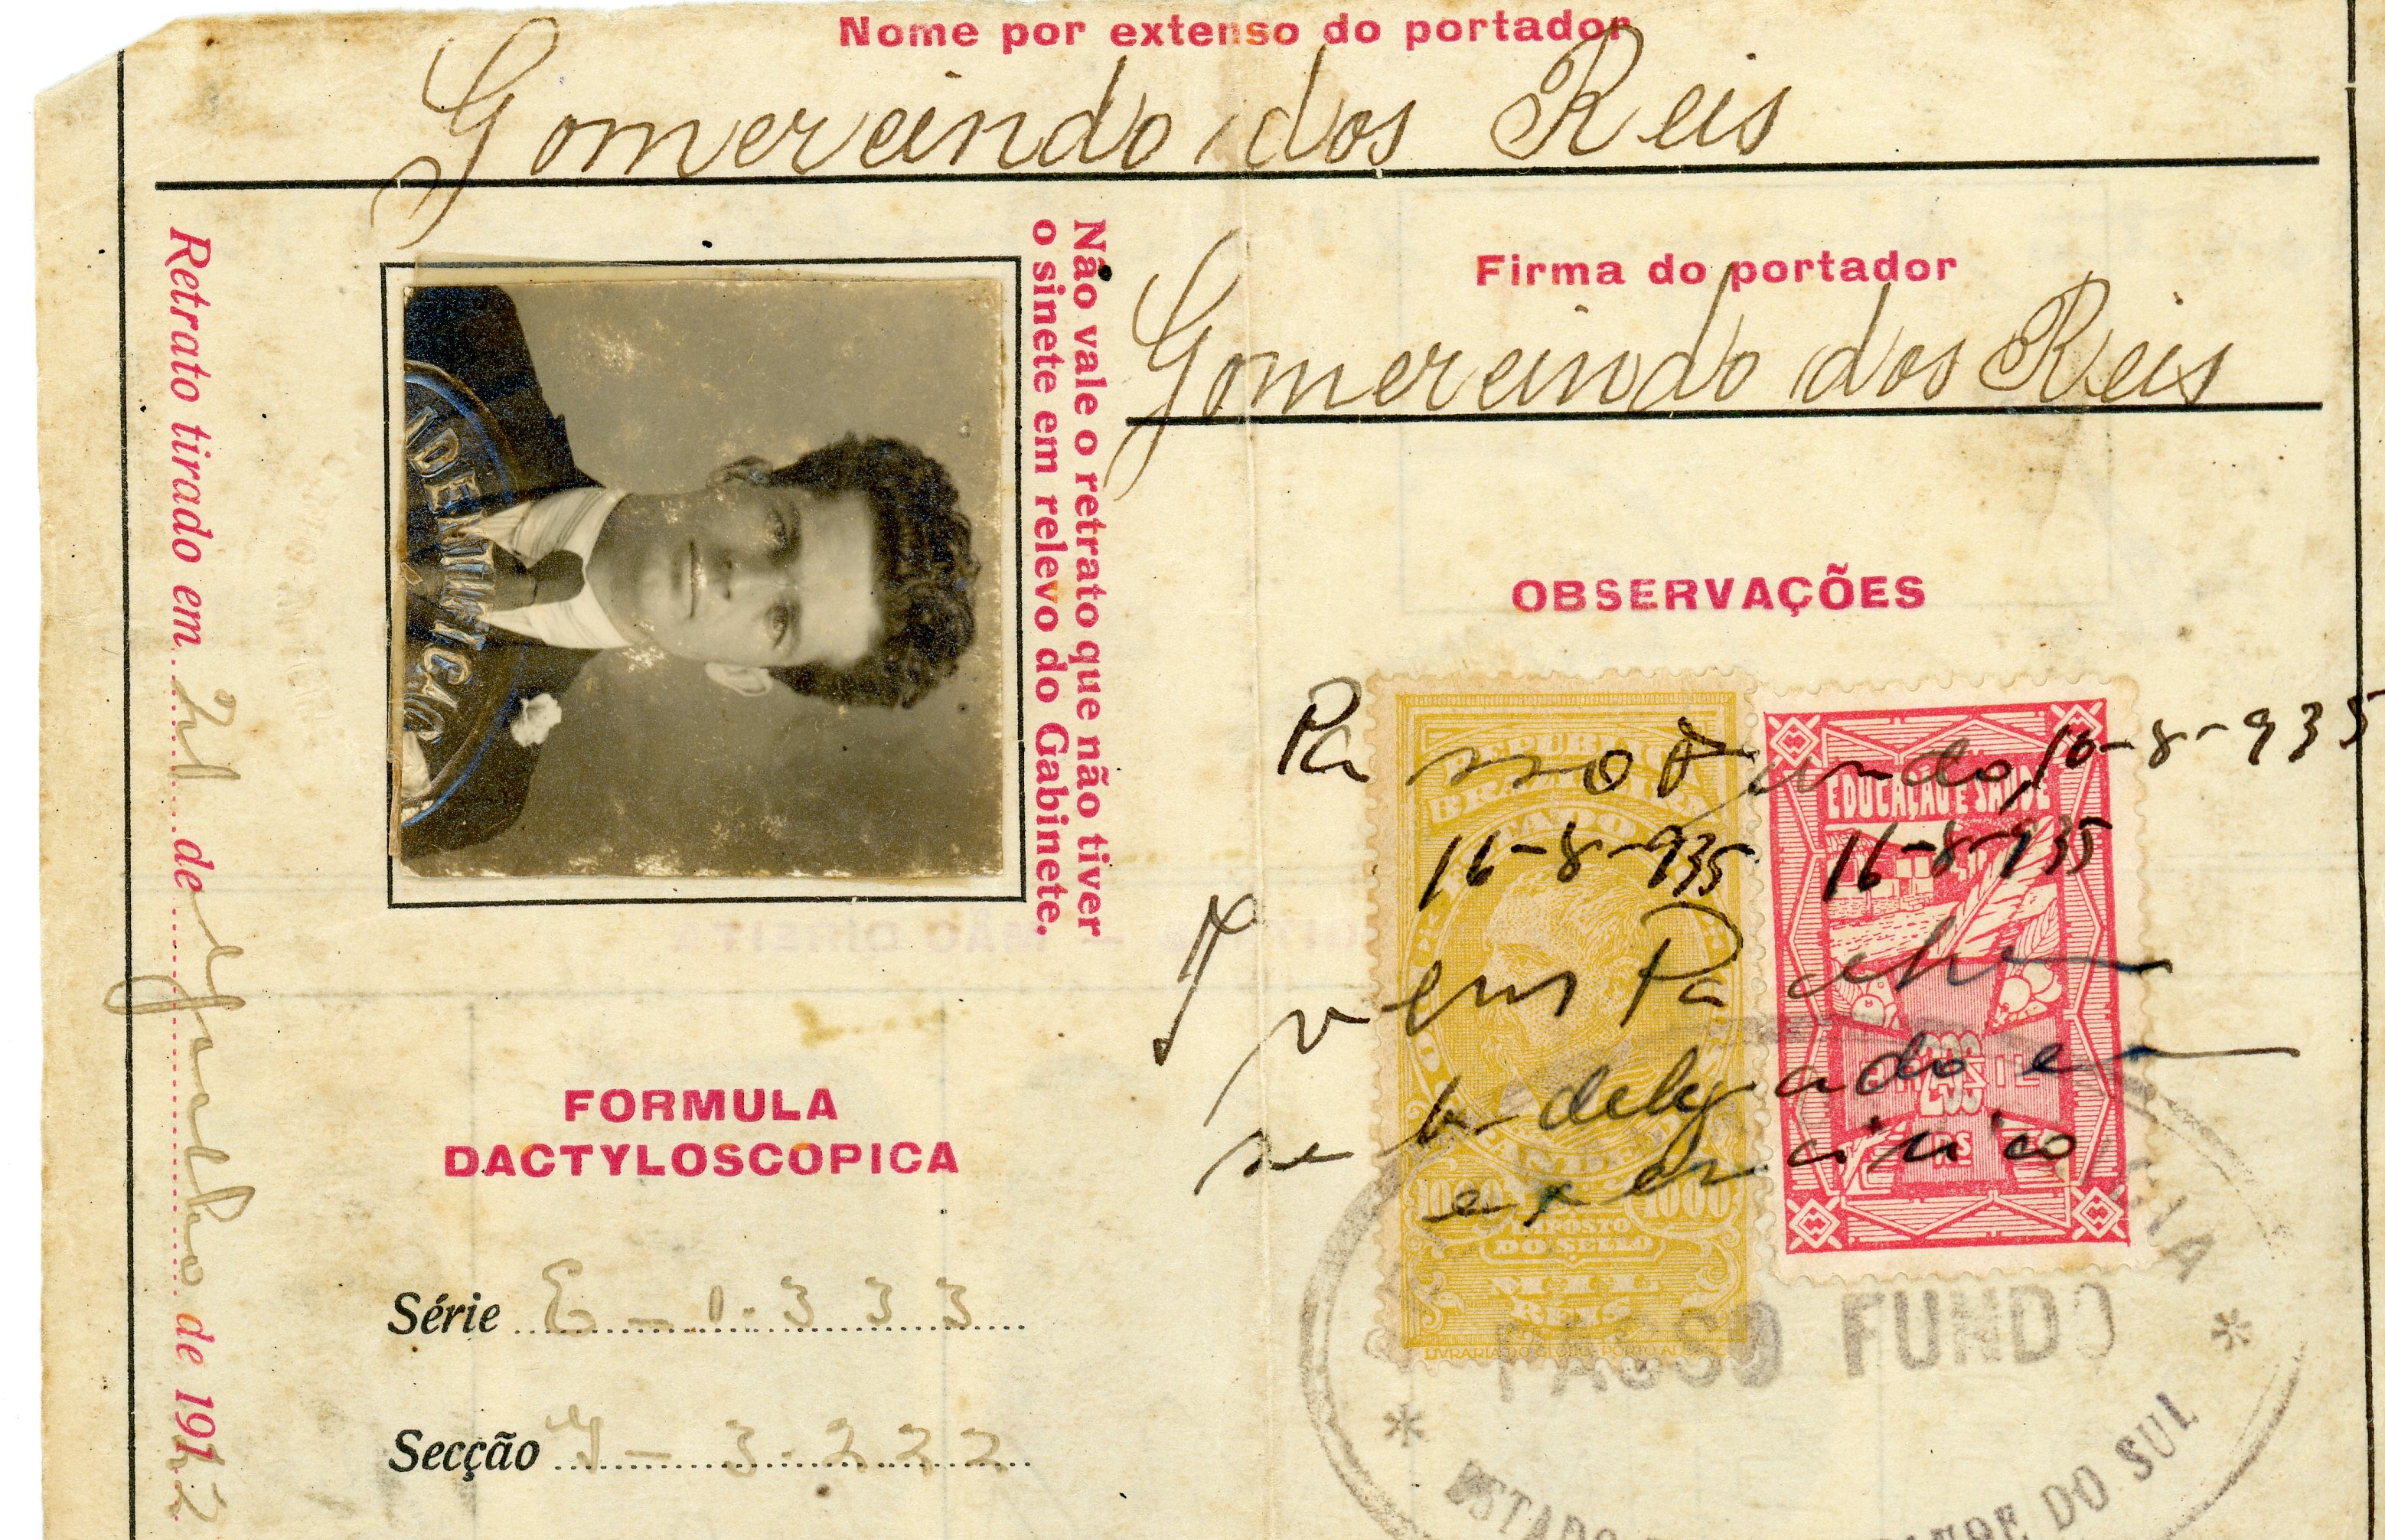 Nome por extenso do portador
Gomercindo dos Reis
Retrato tirado em de de 191
Não vale o retrato que não tiver
o sinete em relevo do Gabinete.
IDENTIFICAC
Firma do portador
Gomercindo dos Reis
OBSERVAÇÕES
Passo Fundo, 16-8-935
16-8-935 16-8-935
sub-delegado em
exercicico
REPUBLICA
BRAZIL
EDUCAÇÃO E SAUDE
BRASIL
200
RS
1000 1000
IMPOSTO
DO SELLO
MIL
RÉIS
LIVRARIA DO GLOBO, PORTO ALEGRE
FORMULA
DACTYLOSCOPICA
Série E-1.333
Secção 3.222
PASSO FUNDO
ESTADO DO SUL